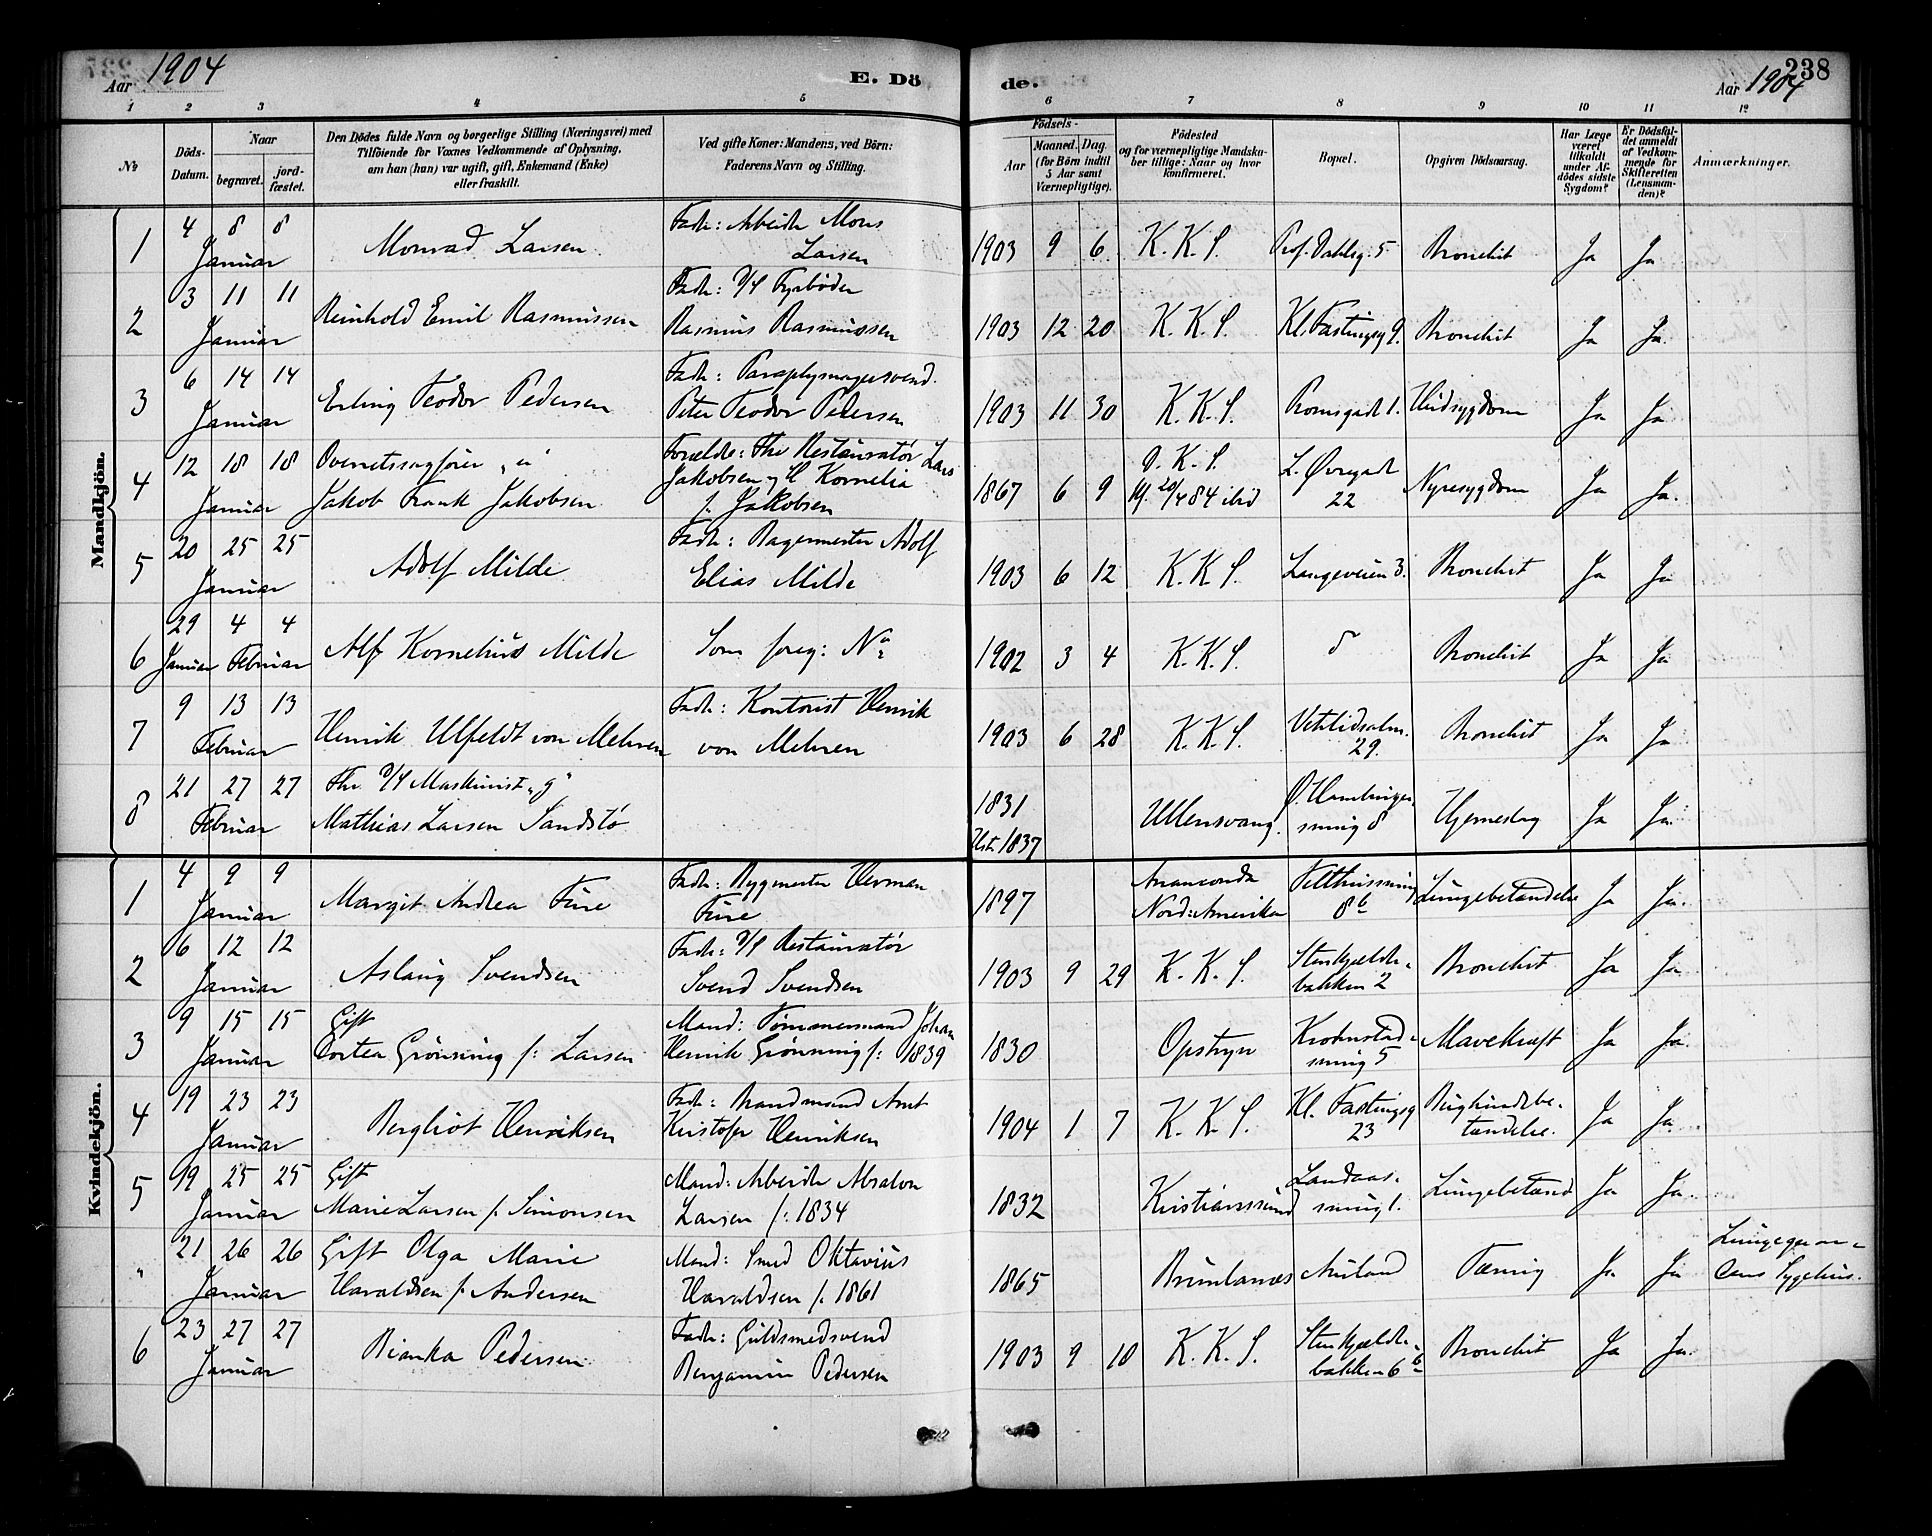 Aar 1904
E. Dö
de.
238
Aar 1904
1 2 3 4 5 6 7 8 9 10 11 12
No
Döds-Datum.
Naar
begravet.
jord-fæstet.
Den Dödes fulde Navn og borgerlige Stilling (Næringsvei) med
Tilföiende for Voxnes Vedkommende af Oplysning,
om han (hun) var ugift, gift, Enkemand (Enke)
eller fraskilt.
Ved gifte Koner: Mandens, ved Börn:
Faderens Navn og Stilling.
Födsels-
Aar
Maaned. Dag.
(for Börn indtil
5 Aar samt
Værnepligtige).
Födested
og for værnepligtige Mandska-
ber tillige: Naar og hvor
konfirmeret.
Bopæl.
Opgiven Dödsaarsag.
Har Læge
været
tilkaldt
under Af-
dödes sidste
Sygdom?
Er Dödsfal-
det anmeldt
af Vedkom-
mende for
Skifteretten
(Lensman-
den)?
Anmærkninger.
Mandkjön.
1 4 8 8 Januar Monrad Larsen Fader: Arbeider Mons
Larsen 1903 9 6 K. K. S. Prof. Dahlsg. 5 Bronchit Ja Ja
2 3 11 11 Januar Reinhold Emil Rasmussen Fader: D/S Fyrbøder
Rasmus Rasmussen 1903 12 20 K. K. S. Kl. Fastingsg 9. Bronchit Ja Ja.
3 6 14 14 Januar Erling Teodor Pedersen Fader: Paraplymagersvend.
Peter Teodor Pedersen 1903 11 30 K. K. S. 1. Hudsygdom Ja Ja
4 12 18 18 Januar Overretssagfører „u“
Jakob Frank Jakobsen Forælde: Fhv Restauratør Lars
Jakobsen og H Kornelia
f. Jakobsen 1867 6 9 D. K. S.
20/4 84 ibid L. Øvregade
22 Nyresygdom Ja Ja.
5 20 25 25 Januar Adolf Milde Fader: Bagermester Adolf
Elias Milde 1903 6 12 K. K S. Langeveien 3. Bronchit Ja Ja
6 29 4 4 Januar Februar Alf Kornelius Milde Som foreg: No 1902 3 4 K. K. S. Bronchit Ja Ja
7 9 13 13 Februar Henrik Ulfeldt von Mehren Fader: Kontorist Henrik
von Mehren 1903 6 28 K. K. S. Vetrlidsalm.
29. Bronchit Ja Ja
8 21 27 27 Februar Fhv. D/S Maskinist „g“
Mathias Larsen Sandstø 1831
1837 Ullensvang.
smug 8 Hjerneslag Ja Ja.
Kvindekjön.
1 4 9 9 Januar Margit Andrea Fure Fader: Bygmester Herman
Fure 1897 Anaconda
Nord-Amerika Felthussmug
8b Lungebetændelse Ja Ja.
2 6 12 12 Januar Aslaug Svendsen Fader: D/S Restauratør
Svend Svendsen 1903 9 29 K. K. S. Stenkjælder-
bakken 2 Bronchit Ja Ja
3 9 15 15 Januar Gift
Dortea Grønning f: Larsen Mand: Tømmermand Johan
Henrik Grønning f: 1839 1830 Opstryn Krohnstad-
smug 5 Mavekræft Ja Ja.
4 19 23 23 Januar Bergliot Henriksen Fader: Brandmand Arnt
Kristofer Henriksen 1904 1 7 K. K. S. Kl. Fastingsg
23 Bughindebe-
tændelse. Ja Ja.
5 19 25 25 Januar Gift
Marie Larsen f. Simonsen Mand: Arbeider Absalon
Larsen f: 1834 1832 Kristianssund Landaas-
smug 1. Lungebetænd Ja Ja.
" 21 26 26 Januar Gift Olga Marie
Haraldsen f. Andersen Mand: Smed Oktavius
Haraldsen f. 1861 1865 Brunlanæs Aurland Tæring Ja Ja Lungegaar-
dens Sygehus.
6 23 27 27 Januar Bianka Pedersen Fader: Guldsmedsvend
Benjamin Pedersen 1903 9 10 K. K. S. Stenkjælder-
bakken 6b Bronchit Ja Ja.